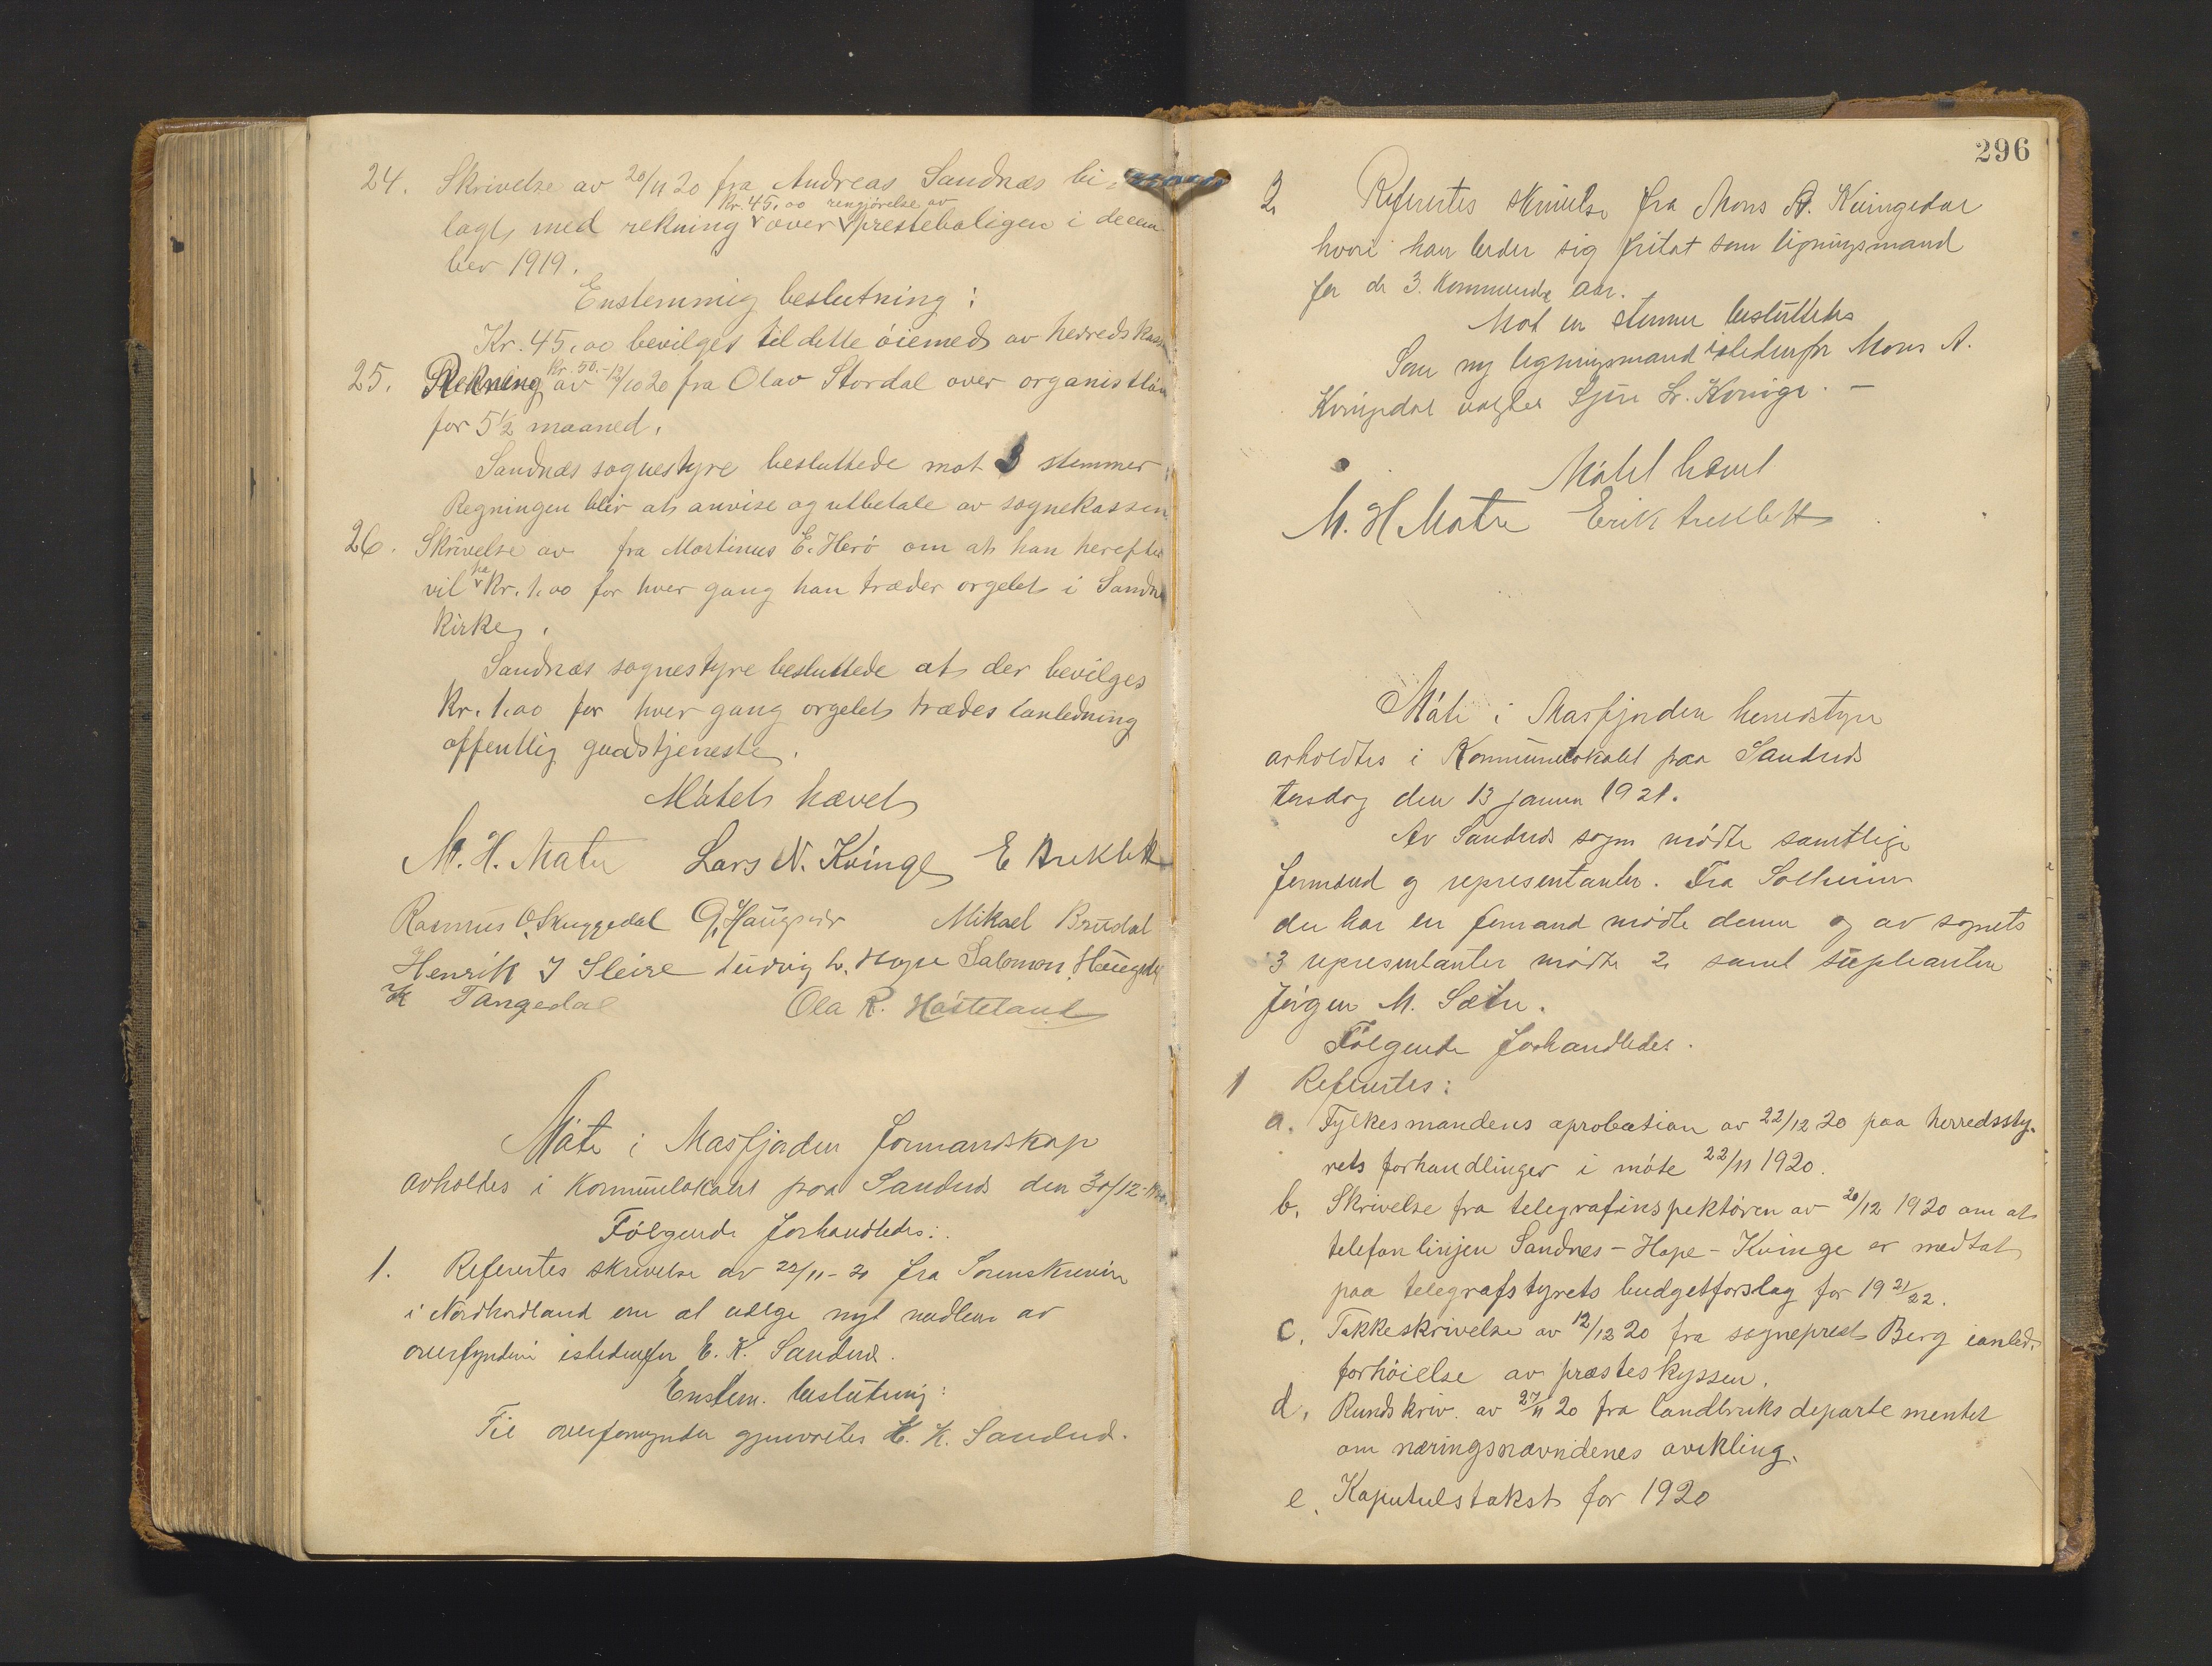 24. Skrivelse av 20/11 20 fra Andreas Sandnæs bi-
kr. 45,00 rengjørelse av
lagt med rekning over presteboligen i decem
ber 1919.
Enstemmig beslutning:
Kr. 45,00 bevilges til dette øiemed av herredskassen
kr. 50.-
25. Rekning av 12/10 20 fra Olav Stordal over organistløn
for 5½ maaned.
Sandnæs sognestyre besluttede mot 3 stemmer
Regningen blir at anvise og utbetale av sognekassen
26. Skrivelse av fra Martinus E. Herö om at han herefter
ha
vil kr. 1,00 for hver gang han træder orgelet i Sandnæs
kirke.
Sandnæs sognestyre besluttede at der bevilges
kr. 1,00 for hver gang orgelet trædes i anledning
offentlig gudstjeneste.
Møtet hævet
M. H. Matre Lars N. Kvinge E Brekklett
Rasmus O. Skuggedal Mikael Brudal
Henrik J Sleire Ludvig L. Hope Salomon Haugsdal
K Tangedal Ola R. Høsteland
Møte i Masfjorden formandskap
avholdtes i Kommunelokalet paa Sandnæs den 30/12-1920
Følgende forhandledes:
1. Refertes skrivelse av 22/11-20 fra Sorenskriveren
i Nordhordland om at vælge nyt medlem av
overformynderi istedenfor E. K. Sandnæs.
Enstem. beslutning:
Til overformynder gjenvalgtes E. K. Sandnæs.
296
2 Refertes skrivelse fra Mons A. Kvingedal
hvori han beder sig fritat som ligningsmand
for de 3. kommende aar.
Mot en stemme besluttedes
Som ny ligningsmand istedenfor Mons A.
Kvingedal valgtes Sjur L. Kvinge. -
Møtet hævet
M. H Matre Erik Brekklett
Møte i Masfjorden herredstyre
avholdtes i Kommunelokalet paa Sandnæs
torsdag den 13 januar 1921.
Av Sandnæs sogn mødte samtlige
formænd og representanter. Fra Solheim
der har en formand mødte denne og av sognets
3 representanter mødte 2 samt supleanten
Jørgen M. Sætre.
Følgende forhandledes.
1 Refertes:
a. Fylkesmandens aprobation av 22/12 20 paa herredssty-
rets forhandlinger i møte 22/11 1920.
b. Skrivelse fra telegrafinspektøren av 20/12 1920 om at
telefonlinjen Sandnes-Hope-Kvinge er medtat
paa telegrafstyrets budgetforslag for 1921/22.
c. Takkeskrivelse av 12/12 20 fra sogneprest Berg i anled.
forhøielse av præsteskyssen.
d. Rundskriv. av 27/11 20 fra landbruksdepartementet
om næringsnævndenes avvikling.
e. Kapitulstakst for 1920